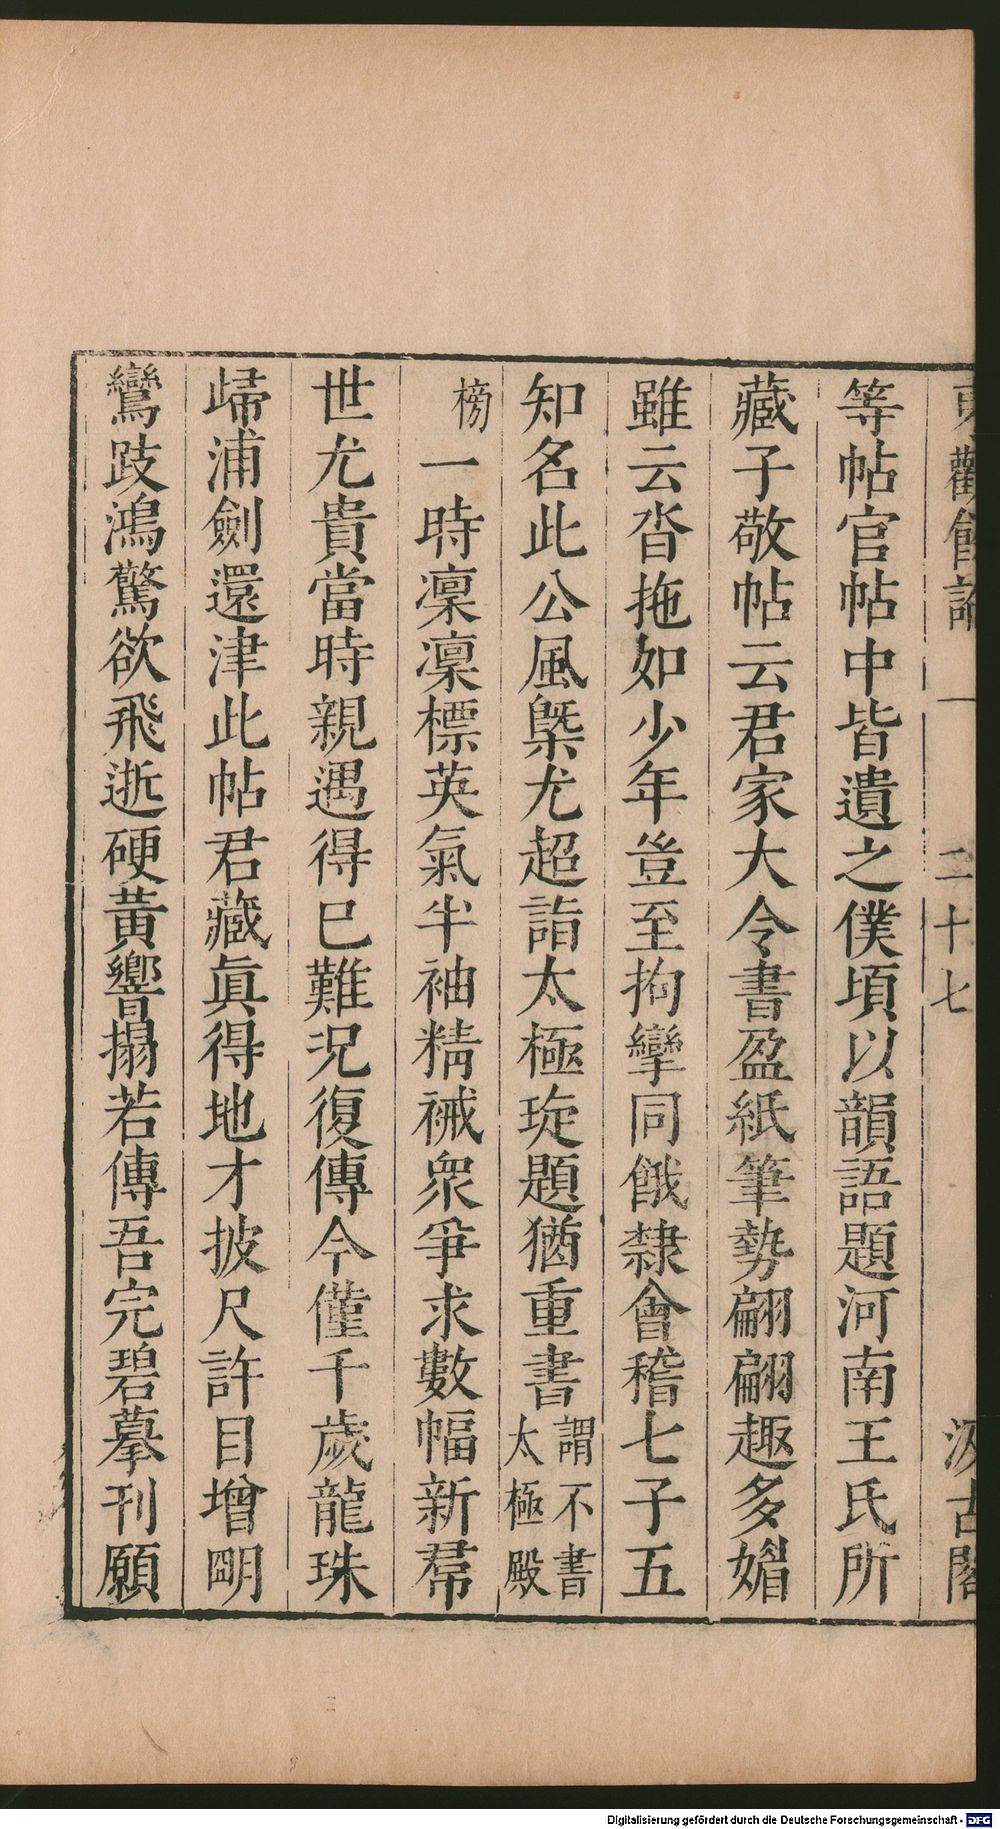 東觀餘論 一 二十七 汲古閣
等帖官帖中皆遺之僕頃以韻語題河南王氏所
藏子敬帖云君家大令書盈紙筆勢翩翩趣多媚
雖云沓拖如少年豈至拘攣同餓隸會稽七子五
知名此公風槩尤超詣太極琁題猶重書謂不書太極殿
榜一時凜凜標英氣半袖精裓衆爭求數幅新帬
世尤貴當時親遇得已難況復傳今僅千歲龍珠
歸浦劍還津此帖君藏眞得地才披尺許目增明
鸞跂鴻驚欲飛逝硬黃響搨若傳吾完碧摹刊願
Digitalisierung gefördert durch die Deutsche Forschungsgemeinschaft - DFG